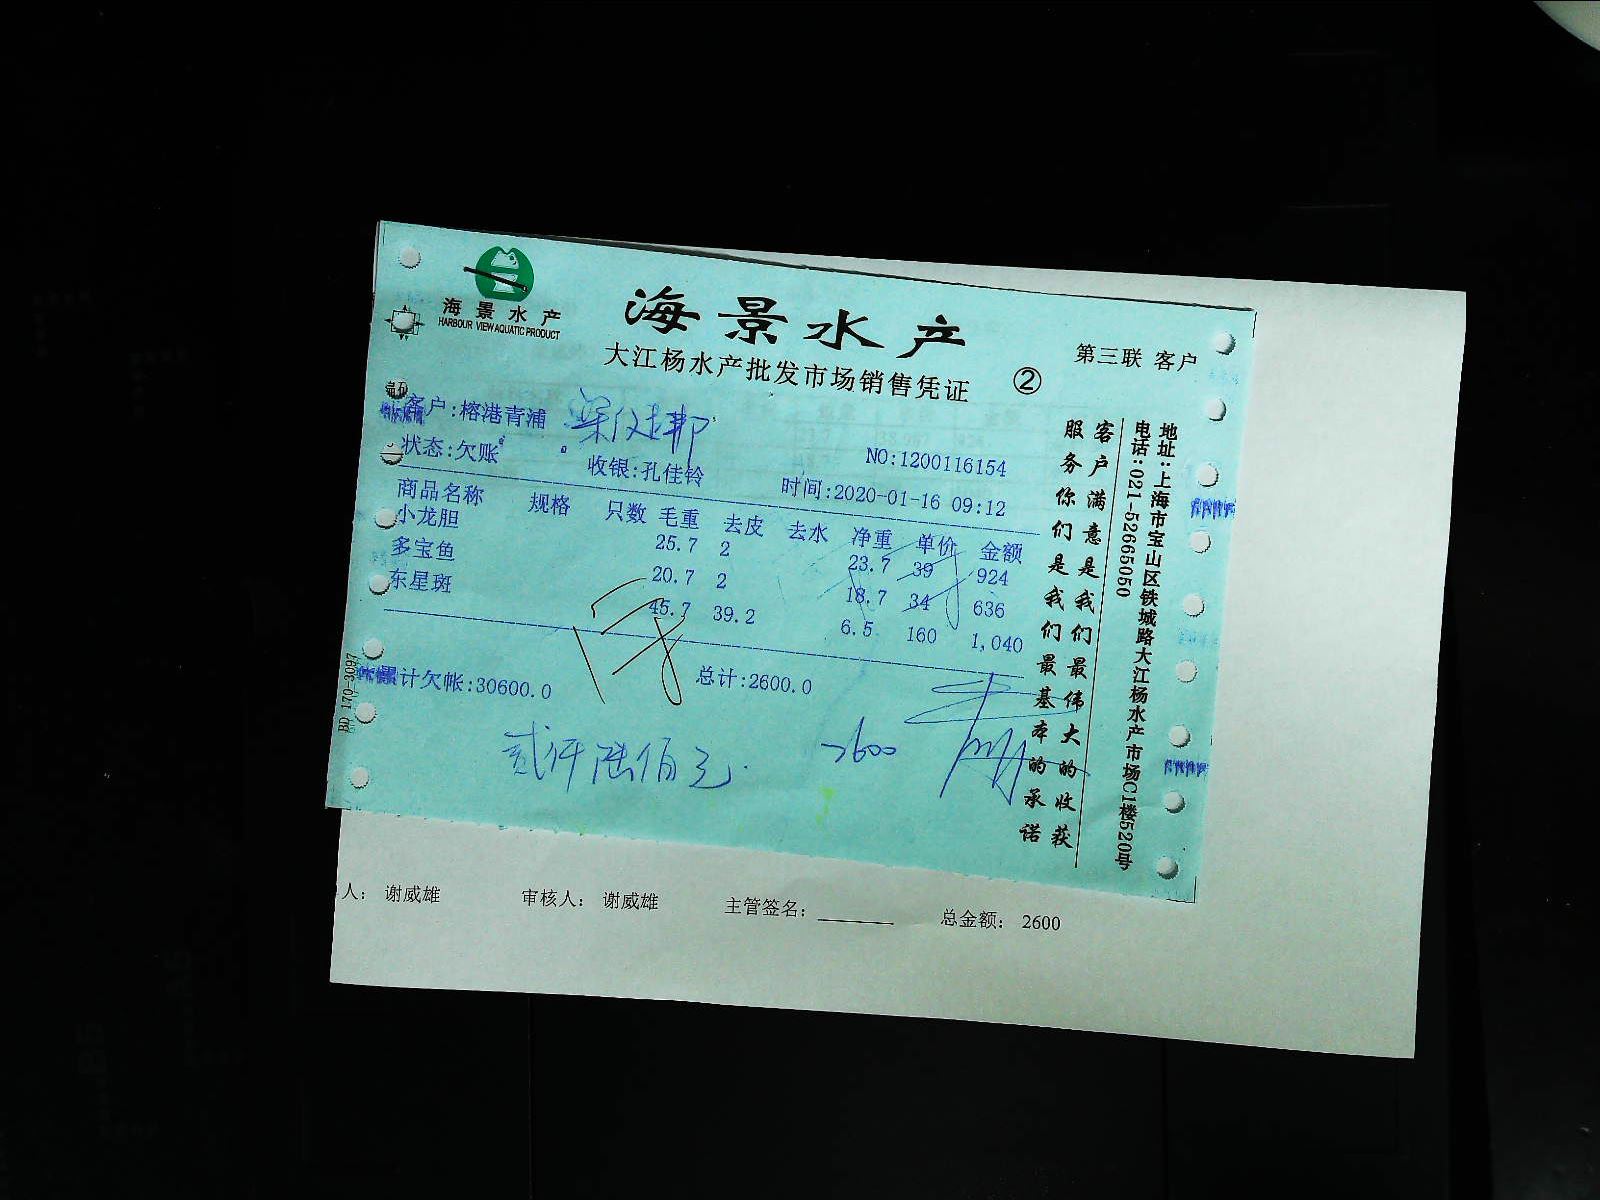 海景水产
HARBOUR VIEW AQUATIC PRODUCT
海景水产
大江杨水产批发市场销售凭证
②
第三联 客户
客户:榕港青浦
状态:欠账
收银:孔佳铃
NO:1200116154
时间:2020-01-16 09:12
商品名称 规格 只数 毛重 去皮 去水 净重 单价 金额
小龙胆 25.7 2 23.7 39 924
多宝鱼 20.7 2 18.7 34 636
东星斑 45.7 39.2 6.5 160 1,040
累计欠帐:30600.0 总计:2600.0
贰仟陆佰元 2600
客户满意是我们最伟大的收获
服务你们是我们最基本的承诺
地址:上海市宝山区铁城路大江杨水产市场C1楼520号
电话:021-52665050
BD 170-3097
人: 谢威雄 审核人: 谢威雄 主管签名: 总金额: 2600